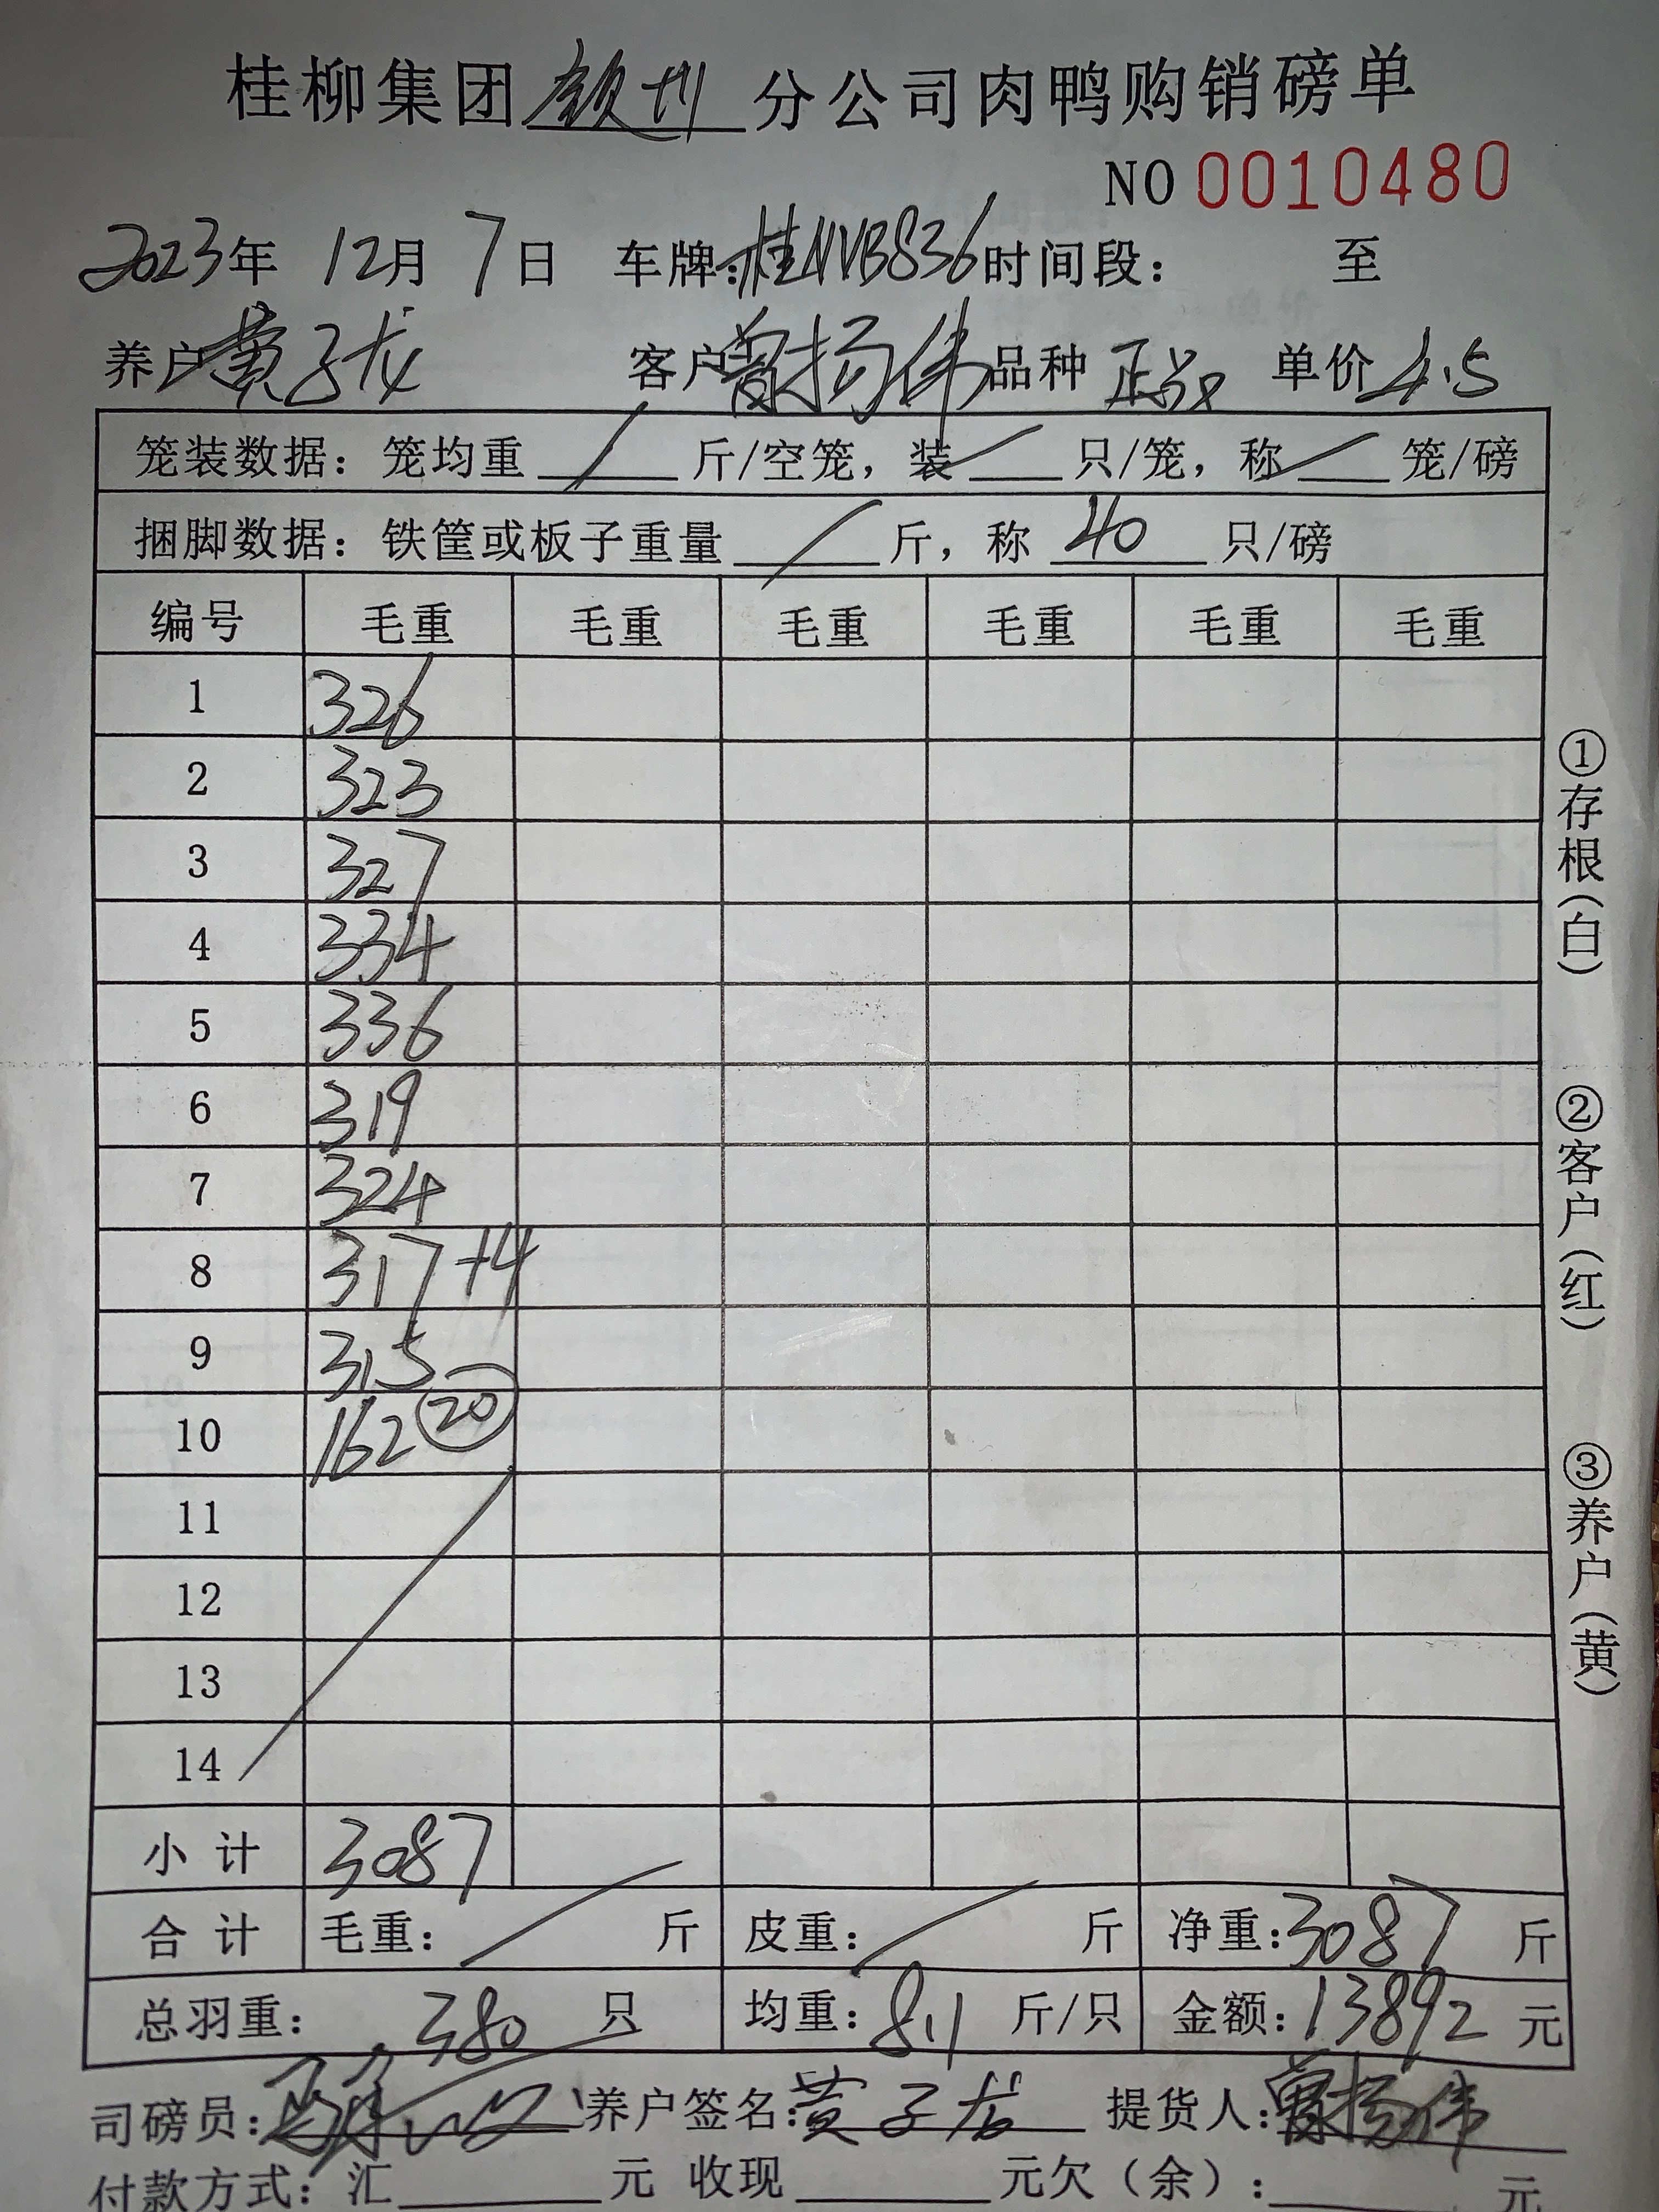 桂柳集团钦州分公司肉鸭购销磅单
NO 0010480
2023年 12月 7日 车牌:桂NVB836时间段: 至
养户黄子龙 客户曾扬伟品种 正品 单价4.5
笼装数据:笼均重 / 斤/空笼,装 / 只/笼,称 / 笼/磅
捆脚数据:铁筐或板子重量 / 斤,称 40 只/磅
编号 毛重 毛重 毛重 毛重 毛重 毛重
1 326
2 323
3 327
4 334
5 336
6 319
7 324
8 317+4
9 315
10 162 20
11
12
13
14
小计 3087
合计 毛重: / 斤 皮重: / 斤 净重:3087 斤
总羽重: 380 只 均重:8.1 斤/只 金额:13892 元
司磅员: 养户签名:黄子龙 提货人:曾扬伟
付款方式:汇 元 收现 元欠(余): 元
①存根(白)
②客户(红)
③养户(黄)